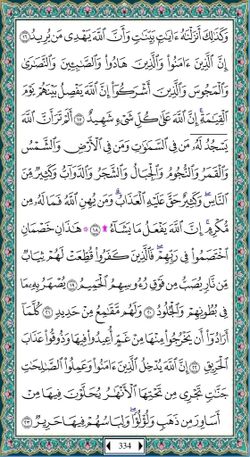 وَكَذَٰلِكَ أَنزَلْنَٰهُ ءَايَٰتٍۭ بَيِّنَٰتٍ وَأَنَّ ٱللَّهَ يَهْدِى مَن يُرِيدُ ۝١٦
إِنَّ ٱلَّذِينَ ءَامَنُوا۟ وَٱلَّذِينَ هَادُوا۟ وَٱلصَّٰبِـِٔينَ وَٱلنَّصَٰرَىٰ
وَٱلْمَجُوسَ وَٱلَّذِينَ أَشْرَكُوٓا۟ إِنَّ ٱللَّهَ يَفْصِلُ بَيْنَهُمْ يَوْمَ
ٱلْقِيَٰمَةِ ۚ إِنَّ ٱللَّهَ عَلَىٰ كُلِّ شَىْءٍ شَهِيدٌ ۝١٧ أَلَمْ تَرَ أَنَّ ٱللَّهَ
يَسْجُدُ لَهُۥ مَن فِى ٱلسَّمَٰوَٰتِ وَمَن فِى ٱلْأَرْضِ وَٱلشَّمْسُ
وَٱلْقَمَرُ وَٱلنُّجُومُ وَٱلْجِبَالُ وَٱلشَّجَرُ وَٱلدَّوَآبُّ وَكَثِيرٌ مِّنَ
ٱلنَّاسِ ۖ وَكَثِيرٌ حَقَّ عَلَيْهِ ٱلْعَذَابُ ۗ وَمَن يُهِنِ ٱللَّهُ فَمَا لَهُۥ مِن
مُّكْرِمٍ ۚ إِنَّ ٱللَّهَ يَفْعَلُ مَا يَشَآءُ ۩ ۝١٨ ۞ هَٰذَانِ خَصْمَانِ
ٱخْتَصَمُوا۟ فِى رَبِّهِمْ ۖ فَٱلَّذِينَ كَفَرُوا۟ قُطِّعَتْ لَهُمْ ثِيَابٌ
مِّن نَّارٍ يُصَبُّ مِن فَوْقِ رُءُوسِهِمُ ٱلْحَمِيمُ ۝١٩ يُصْهَرُ بِهِۦ مَا
فِى بُطُونِهِمْ وَٱلْجُلُودُ ۝٢٠ وَلَهُم مَّقَٰمِعُ مِنْ حَدِيدٍ ۝٢١ كُلَّمَآ
أَرَادُوٓا۟ أَن يَخْرُجُوا۟ مِنْهَا مِنْ غَمٍّ أُعِيدُوا۟ فِيهَا وَذُوقُوا۟ عَذَابَ
ٱلْحَرِيقِ ۝٢٢ إِنَّ ٱللَّهَ يُدْخِلُ ٱلَّذِينَ ءَامَنُوا۟ وَعَمِلُوا۟ ٱلصَّٰلِحَٰتِ
جَنَّٰتٍ تَجْرِى مِن تَحْتِهَا ٱلْأَنْهَٰرُ يُحَلَّوْنَ فِيهَا مِنْ
أَسَاوِرَ مِن ذَهَبٍ وَلُؤْلُؤًا ۖ وَلِبَاسُهُمْ فِيهَا حَرِيرٌ ۝٢٣
334